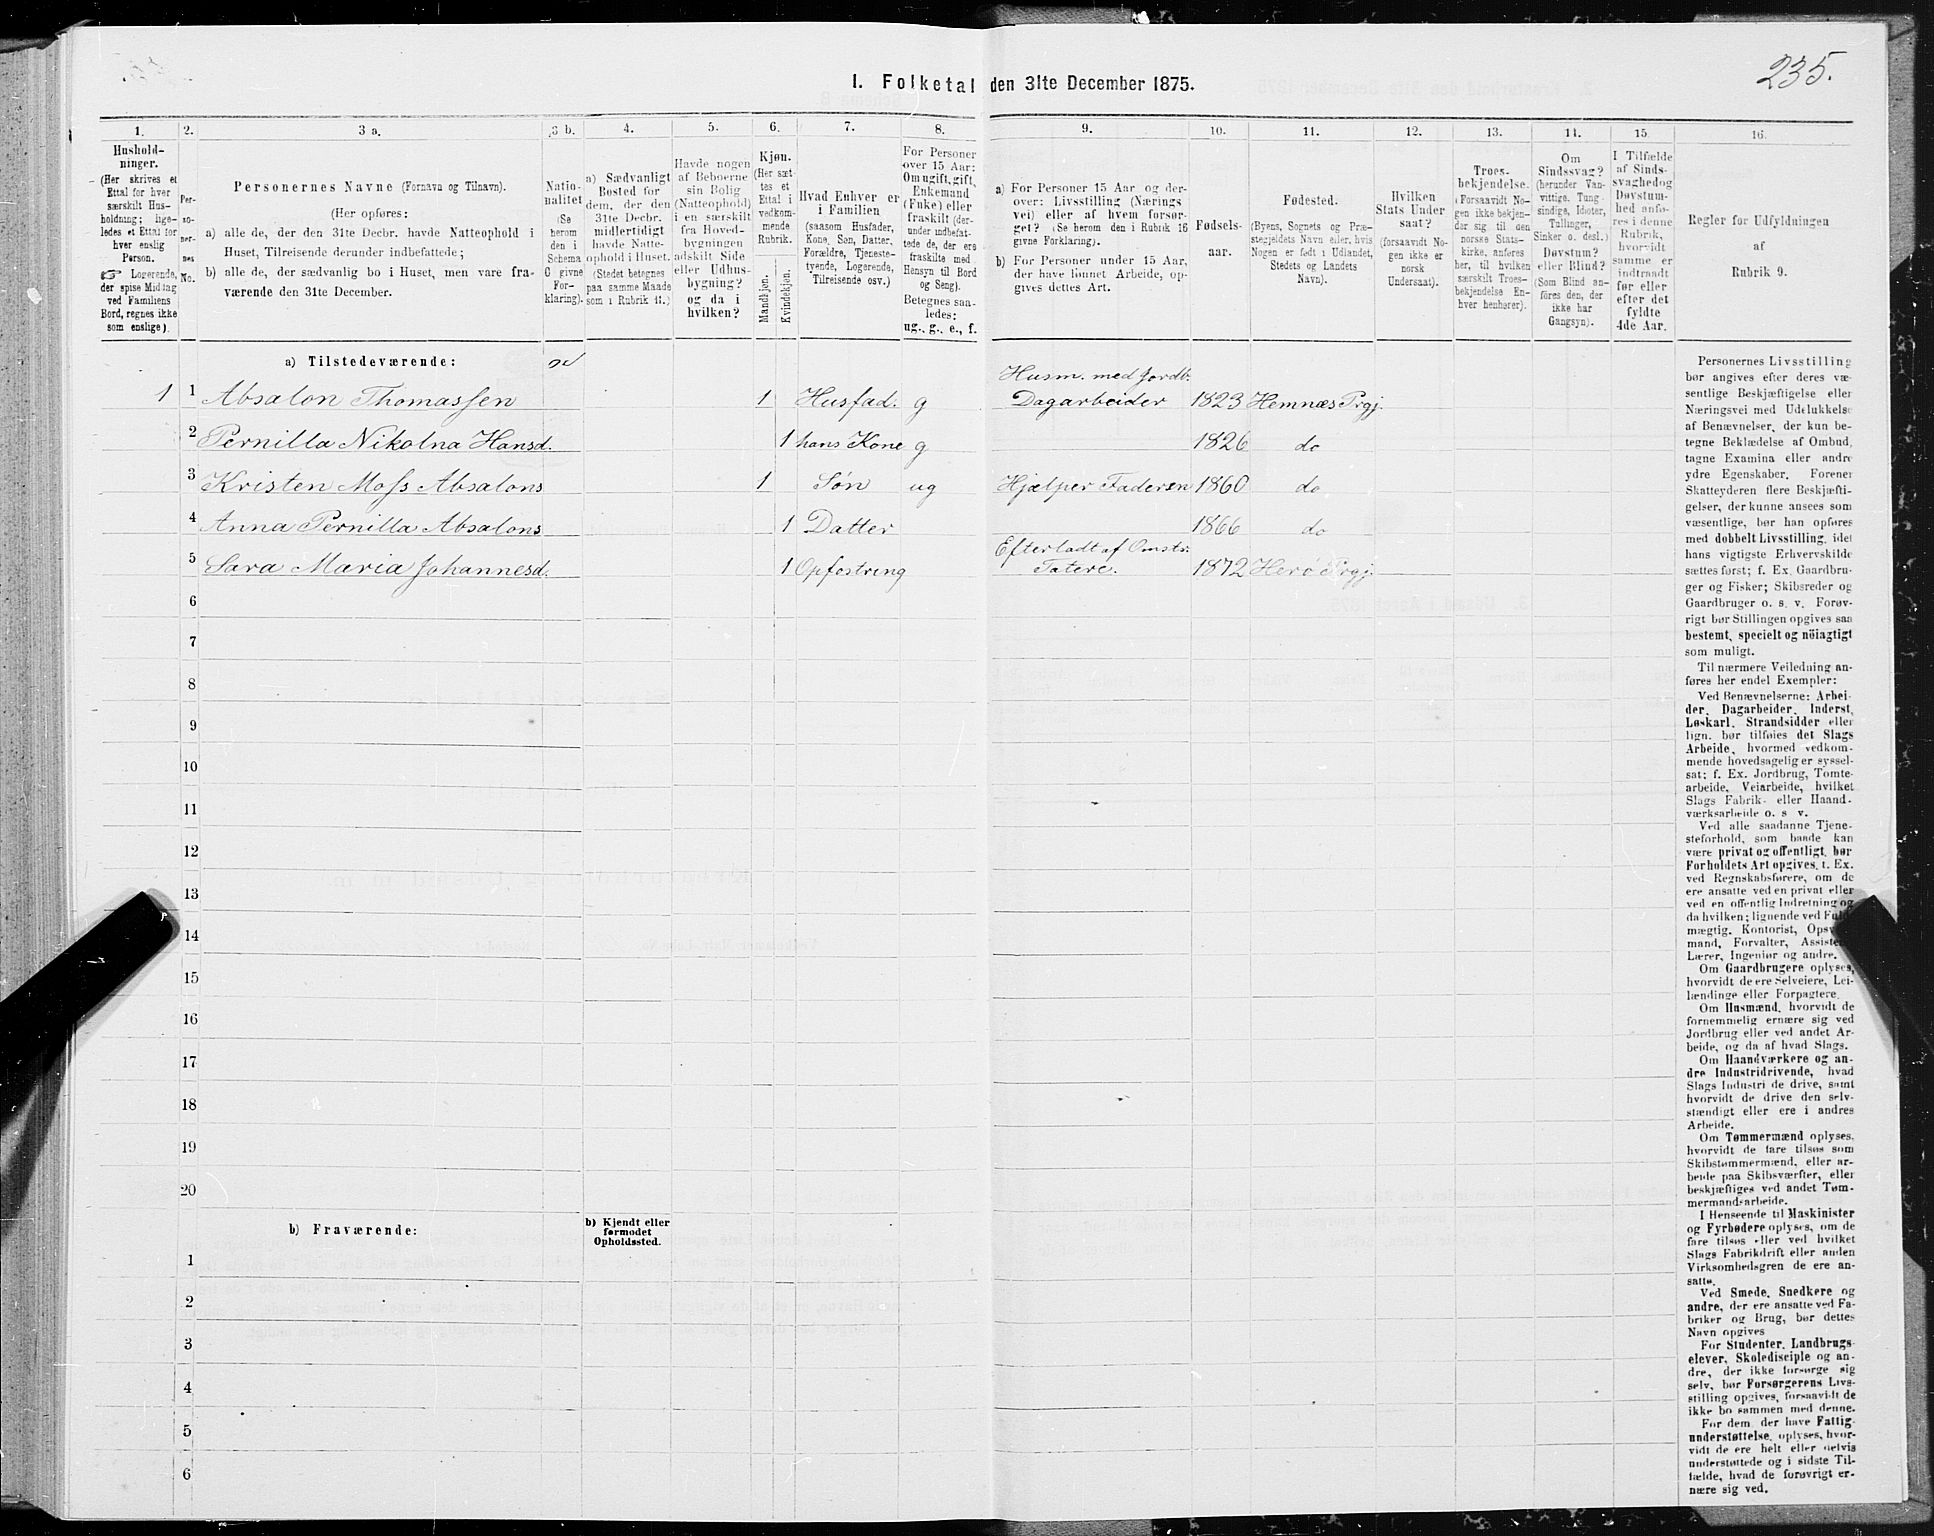 235.
I. Folketal den 31te December 1875.
1. 2. 3 a. 3 b. 4. 5. 6. 7. 8. 9. 10. 11. 12. 13. 14. 15. 16.
Hushold-
ninger.
(Her skrives et
Ettal for hver
særskilt Hus-
holdning; lige-
ledes et Ettal for
hver enslig
Person.
Logerende,
der spise Middag
ved Familiens
Bord, regnes ikke
som enslige).
Per-
so-
ner-
nes
No.
Personernes Navne (Fornavn og Tilnavn).
(Her opføres:
a) alle de, der den 31te Decbr. havde Natteophold i
Huset, Tilreisende derunder indbefattede;
b) alle de, der sædvanlig bo i Huset, men vare fra-
værende den 31te December.
Natio-
nalitet
(Se
herom
den i
Schema
6 givne
For-
klaring).
a) Sædvanligt
Bosted for
dem, der den
31te Decbr.
midlertidigt
havde Natte-
ophold i Huset.
(Stedet betegnes
paa samme Maade
som i Rubrik 11.)
Havde nogen
af Beboerne
sin Bolig
(Natteophold)
i en særskilt
fra Hoved-
bygningen
adskilt Side
eller Udhus-
bygning?
og da i
hvilken?
Kjøn.
(Her sæt-
tes et
Ettal i
vedkom-
mende
Rubrik.
Mandkjøn.
Kvindekjøn.
Hvad Enhver er
i Familien
(saasom Husfader,
Kone, Søn, Datter,
Forældre, Tjeneste-
tyende, Logerende,
Tilreisende osv.)
For Personer
over 15 Aar:
Om ugift, gift,
Enkemand
(Enke) eller
fraskilt (der-
under indbefat-
tede de, der ere
fraskilte med
Hensyn til Bord
og Seng).
Betegnes saa-
ledes:
ug., g., e., f.
a) For Personer 15 Aar og der-
over: Livsstilling (Nærings
vei) eller af hvem forsør-
get? (Se herom den i Rubrik 16
givne Forklaring).
b) For Personer under 15 Aar,
der have lønnet Arbeide, op-
gives dettes Art.
Fødsels-
aar.
Fødested.
(Byens, Sognets og Præ-
stegjeldets Navn eller, hvis
Nogen er født i Udlandet,
Stedets og Landets
Navn).
Hvilken
Stats Under
saat?
(forsaavidt No-
gen ikke er
norsk
Undersaat).
Troes-
bekjendelse.
(Forsaavidt No-
gen ikke bekjen-
der sig til den
norske Stats-
kirke, anføres
her, til hvilken
særskilt Troes-
bekjendelse En-
hver henhører).
Om
Sindssvag?
(herunder Van-
vittige, Tung-
sindige, Idioter,
Tullinger,
Sinker o. desl.)
Døvstum?
eller Blind?
(Som Blind an-
føres den, der
ikke har
Gangsyn).
I Tilfælde
af Sinds-
svaghed og
Døvstum-
hed anfø-
res i denne
Rubrik,
hvorvidt
samme er
indtraadt
før eller
efter det
fyldte
4de Aar.
Regler for Udfyldningen
af
Rubrik 9.
a) Tilstedeværende:
1 1 Absalon Thomassen 1 Husfad. g Husm. med Jordb. Dagarbeider 1823 Hemnæs Prgj.
2 Pernilla Nikolna Hansd. 1 hans Kone g 1826 do
3 Kristen Moss Absalons 1 Søn ug Hjælper Faderen 1860 do
4 Anna Pernilla Absalons 1 Datter 1866 do
5 Sara Maria Johannesd. 1 Opfostring Efterladt af Omstr. Tatere. 1872 Herø Prgj.
6
7
8
9
10
11
12
13
14
15
16
17
18
19
20
b) Fraværende:
b) Kjendt eller
formodet
Opholdssted.
1
2
3
4
5
6
Personernes Livsstilling
bør angives efter deres væ-
sentlige Beskjæftigelse eller
Næringsvei med Udelukkelse
af Benævnelser, der kun be-
tegne Beklædelse af Ombud,
tagne Examina eller andre
ydre Egenskaber. Forener
Skatteyderen flere Beskjæfti-
gelser, der kunne ansees som
væsentlige, bør han opføres
med dobbelt Livsstilling, idet
hans vigtigste Erhvervskilde
sættes først; f. Ex. Gaardbru-
ger og Fisker; Skibsreder og
Gaardbruger o. s. v. Forøv-
rigt bør Stillingen opgives saa
bestemt, specielt og nöiagtigt
som muligt.
Til nærmere Veiledning an-
føres her endel Exempler:
Ved Benævnelserne: Arbei-
der, Dagarbeider, Inderst,
Løskarl, Strandsidder eller
lign. bør tilføies det Slags
Arbeide, hvormed vedkom-
mende hovedsagelig er syssel-
sat; f. Ex. Jordbrug, Tomte-
arbeide, Veiarbeide, hvilket
Slags Fabrik- eller Haand-
værksarbeide o. s v.
Ved alle saadanne Tjene-
steforhold, som baade kan
være privat og offentligt, bør
Forholdets Art opgives, t. Ex.
ved Regnskabsførere, om de
ere ansatte ved en privat eller
ved en offentlig Indretning og
da hvilken; lignende ved
mægtig, Kontorist,
mand, Forvalter,
Lærer, Ingeniør og andre.
Om Gaardbrugere oplyses,
hvorvidt de ere Selveiere, Lei-
lændinge eller Forpagtere.
Om Husmænd, hvorvidt de
fornemmelig ernære sig ved
Jordbrug eller ved andet Ar-
beide, og da af hvad Slags.
Om Haandværkere og an-
dre Industridrivende, hvad
Slags Industri de drive, samt
hvorvidt de drive den selv-
stændigt eller ere i andres
Arbeide.
Om Tømmermænd oplyses,
hvorvidt de fare tilsøs som
Skibstømmermænd, eller ar-
beide paa Skibsværfter, eller
beskjæftiges ved andet Tøm-
mermandsarbeide.
I Henseende til Maskinister
og Fyrbødere oplyses, om de
fare tilsøs eller ved hvilket
Slags Fabrikdrift eller anden
Virksomhedsgren de ere an-
satte.
Ved Smede, Snedkere og
andre, der ere ansatte ved Fa-
briker og Brug, bør dettes
Navn opgives
For Studenter, Landbrugs-
elever, Skoledisciple og an-
dre, der ikke forsørge sig
selv, bør Forsørgerens Livs-
stilling opgives, forsaavidt de
ikke bo sammen med denne.
For dem, der have Fattig-
understøttelse, oplyses, hvor-
vidt de ere helt eller delvis
understøttede og i sidste Til-
fælde, hvad de forøvrigt er-
nære sig ved.